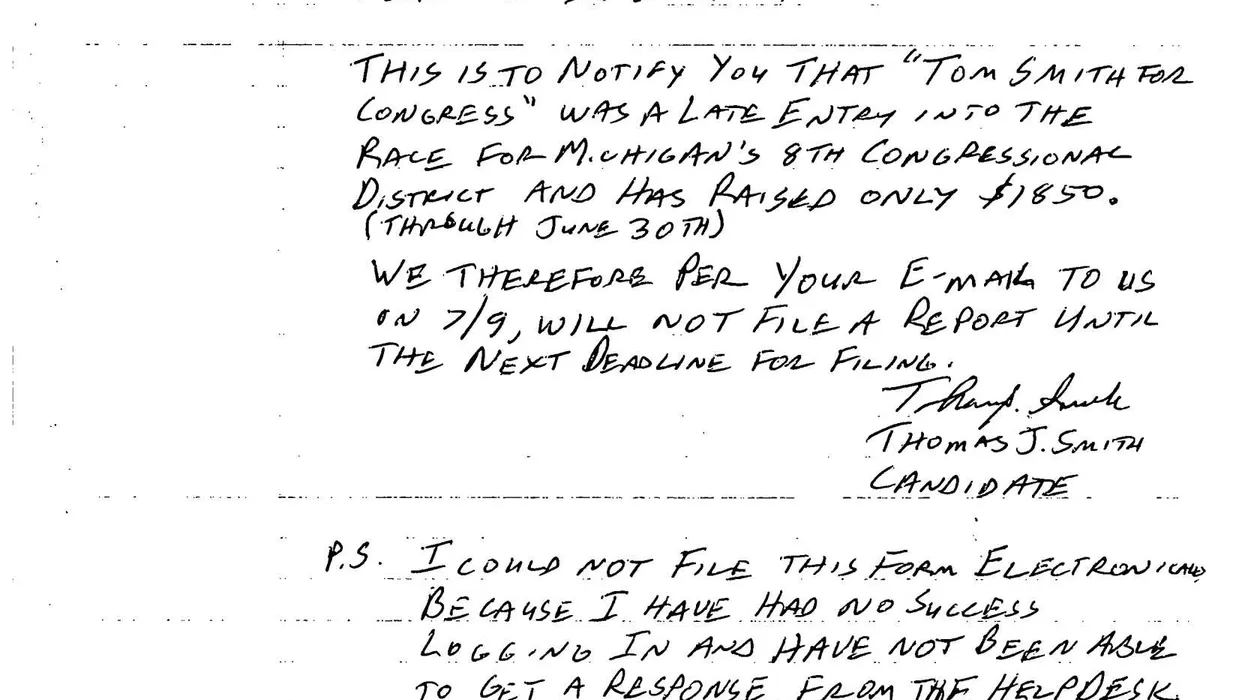 THIS IS TO NOTIFY YOU THAT "TOM SMITH FOR
CONGRESS" WAS A LATE ENTRY INTO THE
RACE FOR MICHIGAN'S 8TH CONGRESSIONAL
DISTRICT AND HAS RAISED ONLY $1850.
(THROUGH JUNE 30TH)
WE THEREFORE PER YOUR E-MAIL TO US
ON 7/9, WILL NOT FILE A REPORT UNTIL
THE NEXT DEADLINE FOR FILING.
THOMAS J. SMITH
CANDIDATE
P.S. I COULD NOT FILE THIS FORM ELECTRONICALLY
BECAUSE I HAVE HAD NO SUCCESS
LOGGING IN AND HAVE NOT BEEN ABLE
TO GET A RESPONSE FROM THE HELPDESK